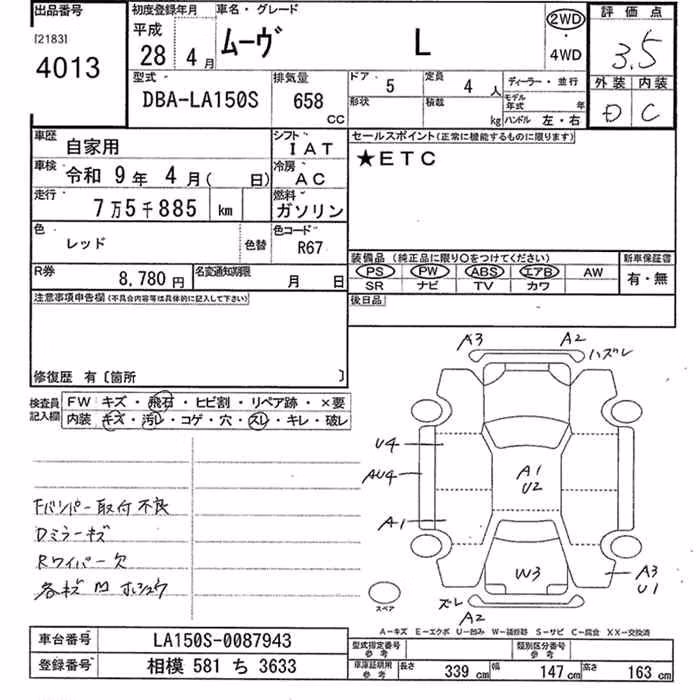 出品番号
[2183]
4013
初度登録年月
平成
28 4 月
車名・グレード
ムーヴ L
2WD
・
4WD
評価点
3.5
外装 内装
D C
型式
DBA-LA150S
排気量
658
CC
ドア 5
定員 4 人
形状
積載 kg
ディーラー・並行
モデル年式 年
ハンドル 左・右
車歴 自家用
シフト IAT
車検 令和 9 年 4 月( 日)
冷房 AC
走行 7 万 5 千 885 km
燃料 ガソリン
色 レッド 色替
色コード R67
R券 8,780 円
名変通知期限 月 日
セールスポイント(正常に機能するものに限ります)
★ETC
装備品(純正品に限り○をつけてください)
PS PW ABS エアB AW
SR ナビ TV カワ
新車保証書
有・無
後日品
注意事項申告欄(不具合内容等は具体的に記入して下さい)
修復歴 有〔箇所 〕
検査員記入欄
FW キズ・飛石・ヒビ割・リペア跡・×要
内装 キズ・汚レ・コゲ・穴・スレ・キレ・破レ
Fバンパー取付不良
Dミラーキズ
Rワイパー欠
各キズ凹ホシュウ
A3 A2
ハズレ
U4
AU4
A1
A1
U2
W3
A3
U1
ズレ
A2
スペア
A-キズ E-エクボ U-凹み W-補修跡 S-サビ C-腐食 XX-交換済
車台番号 LA150S-0087943
登録番号 相模 581 ち 3633
型式指定番号
参考
類別区分番号
参考
車庫証明用
参考
長さ 339 cm 幅 147 cm 高さ 163 cm